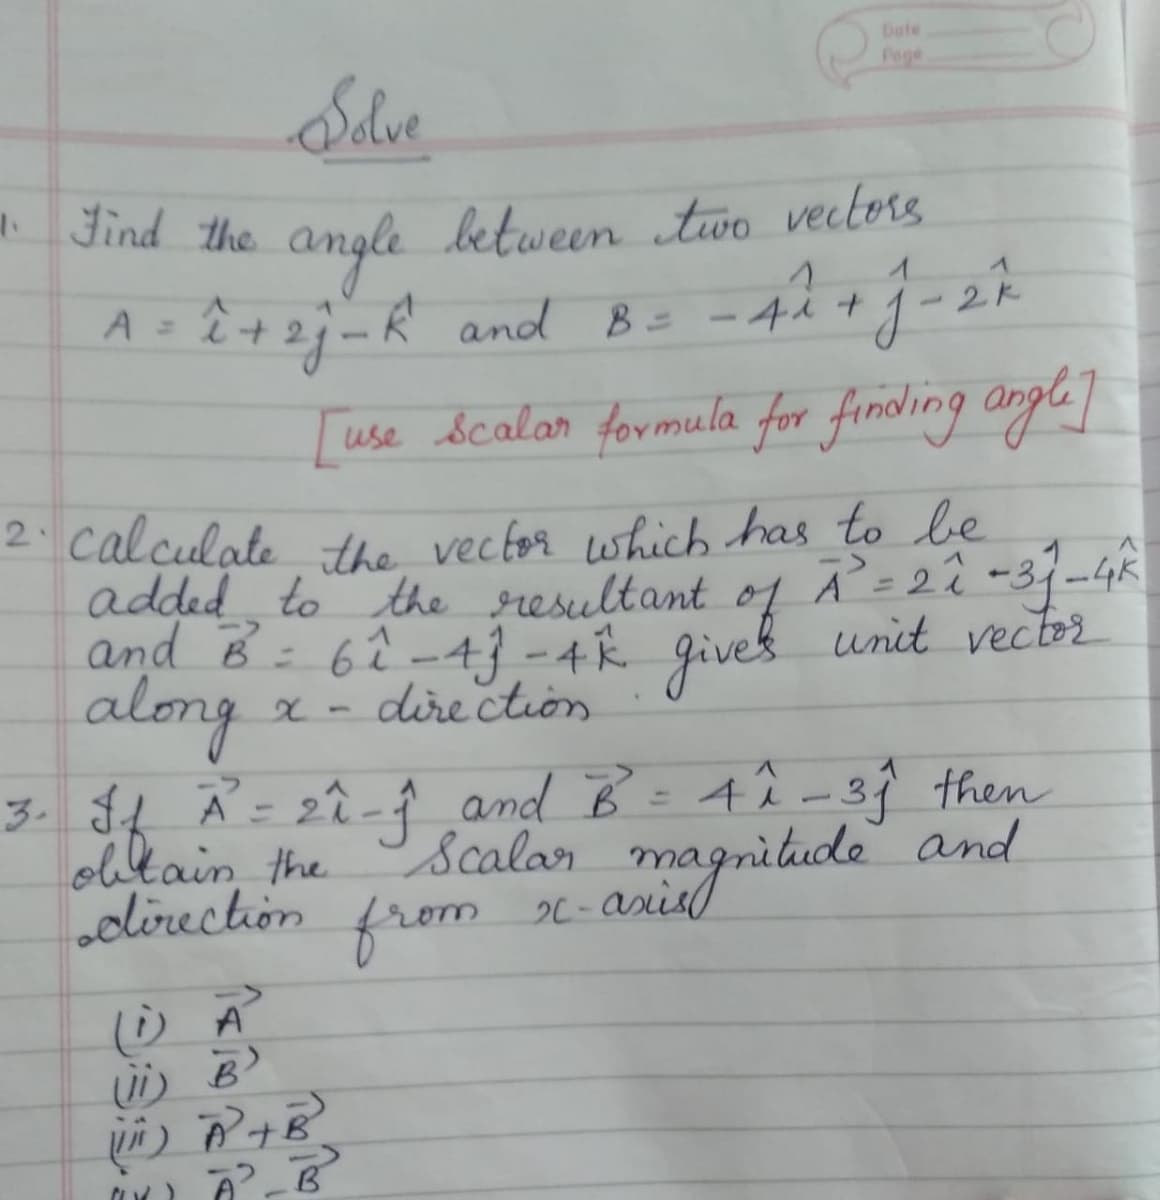 Date
Page
Solve
1. Find the angle between two vectors
A = î + 2ĵ - k̂ and B = - 4î + ĵ - 2k̂
[use scalar formula for finding angle]
2. calculate the vector which has to be
added to the resultant of A⃗ = 2î - 3ĵ - 4k̂
and B⃗ = 6î - 4ĵ - 4k̂ gives unit vector
along x - direction.
3. If A⃗ = 2î - ĵ and B⃗ = 4î - 3ĵ then
obtain the Scalar magnitude and
direction from x-axis
(i) A⃗
(ii) B⃗
(iii) A⃗ + B⃗
(iv) A⃗ - B⃗